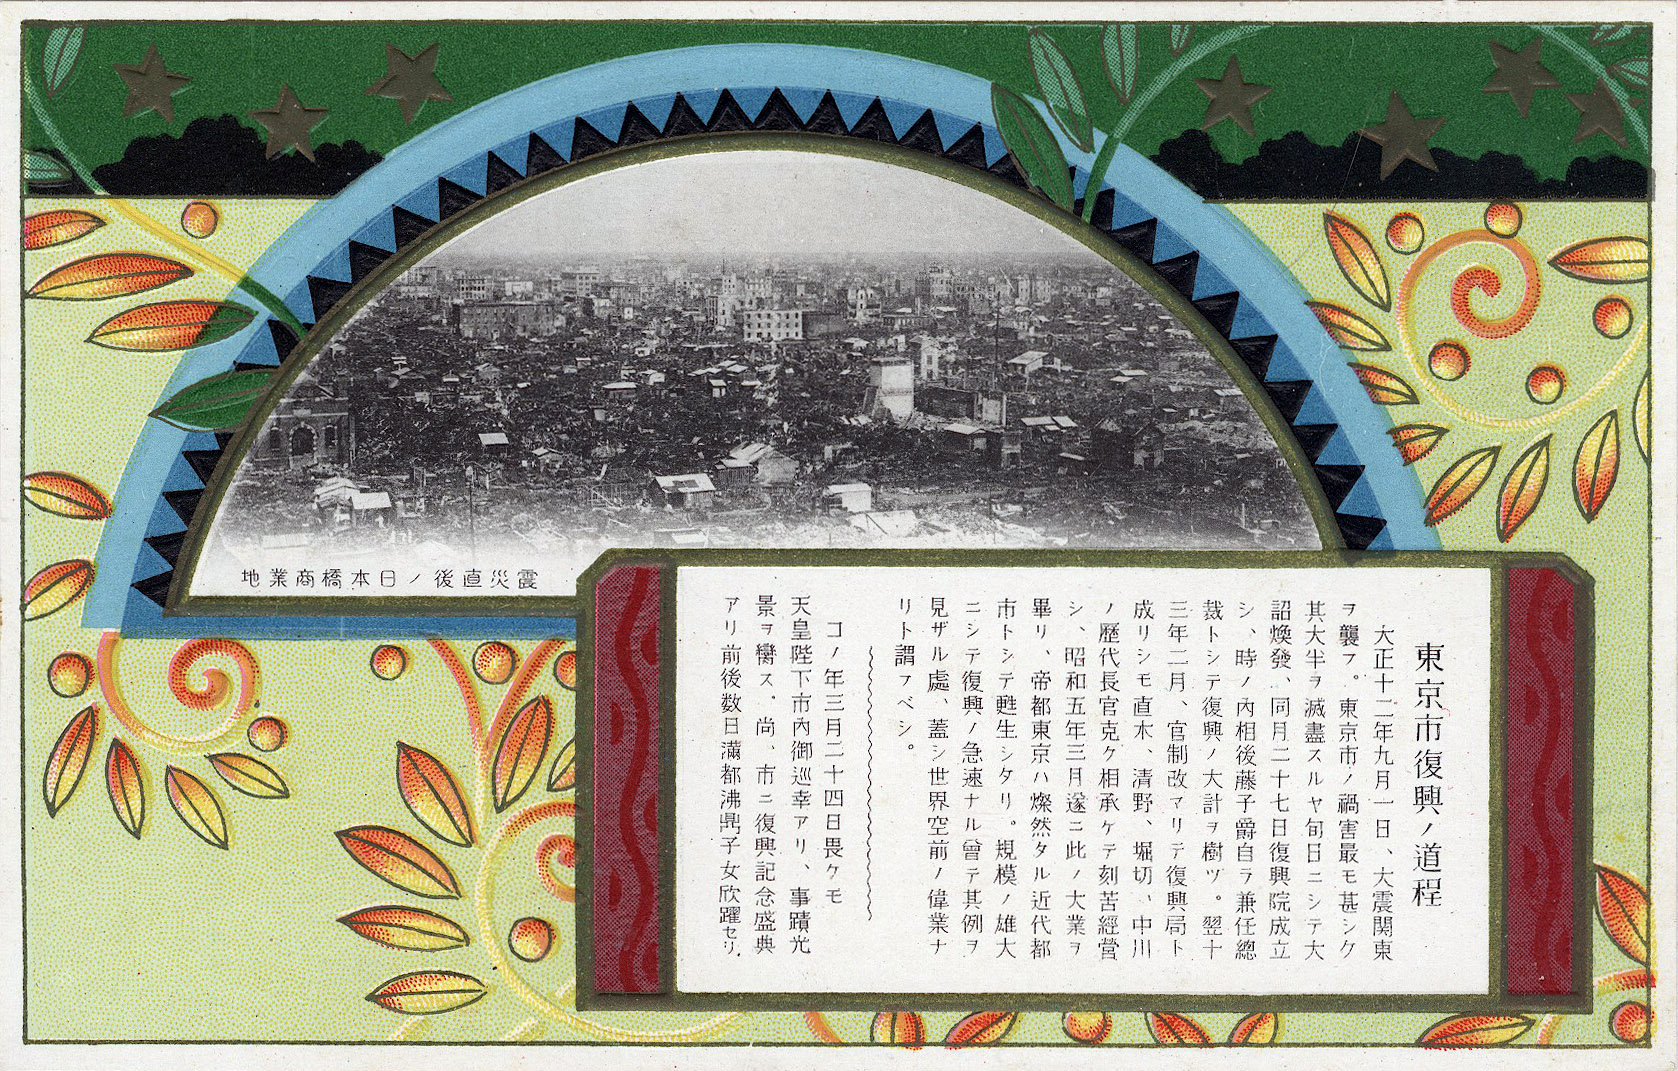 東京市復興ノ道程
大正十二年九月一日、大震関東
ヲ襲フ。東京市ノ禍害最モ甚シク
其大半ヲ滅盡スルヤ旬日ニシテ大
詔煥發、同月二十七日復興院成立
シ、時ノ內相後藤子爵自ラ兼任總
裁トシテ復興ノ大計ヲ樹ツ。翌十
三年二月、官制改マリテ復興局ト
成リシモ直木、清野、堀切、中川
ノ歴代長官克ク相承ケテ刻苦經營
シ、昭和五年三月遂ニ此ノ大業ヲ
畢リ、帝都東京ハ燦然タル近代都
市トシテ甦生シタリ。規模ノ雄大
ニシテ復興ノ急速ナル曾テ其例ヲ
見ザル處、蓋シ世界空前ノ偉業ナ
リト謂フベシ。
コノ年三月二十四日畏ケモ
天皇陛下市內御巡幸アリ、事蹟光
景ヲ臠ス。尚、市ニ復興記念盛典
アリ前後数日滿都沸鼎子女欣躍セリ。
地業商橋本日ノ後直災震